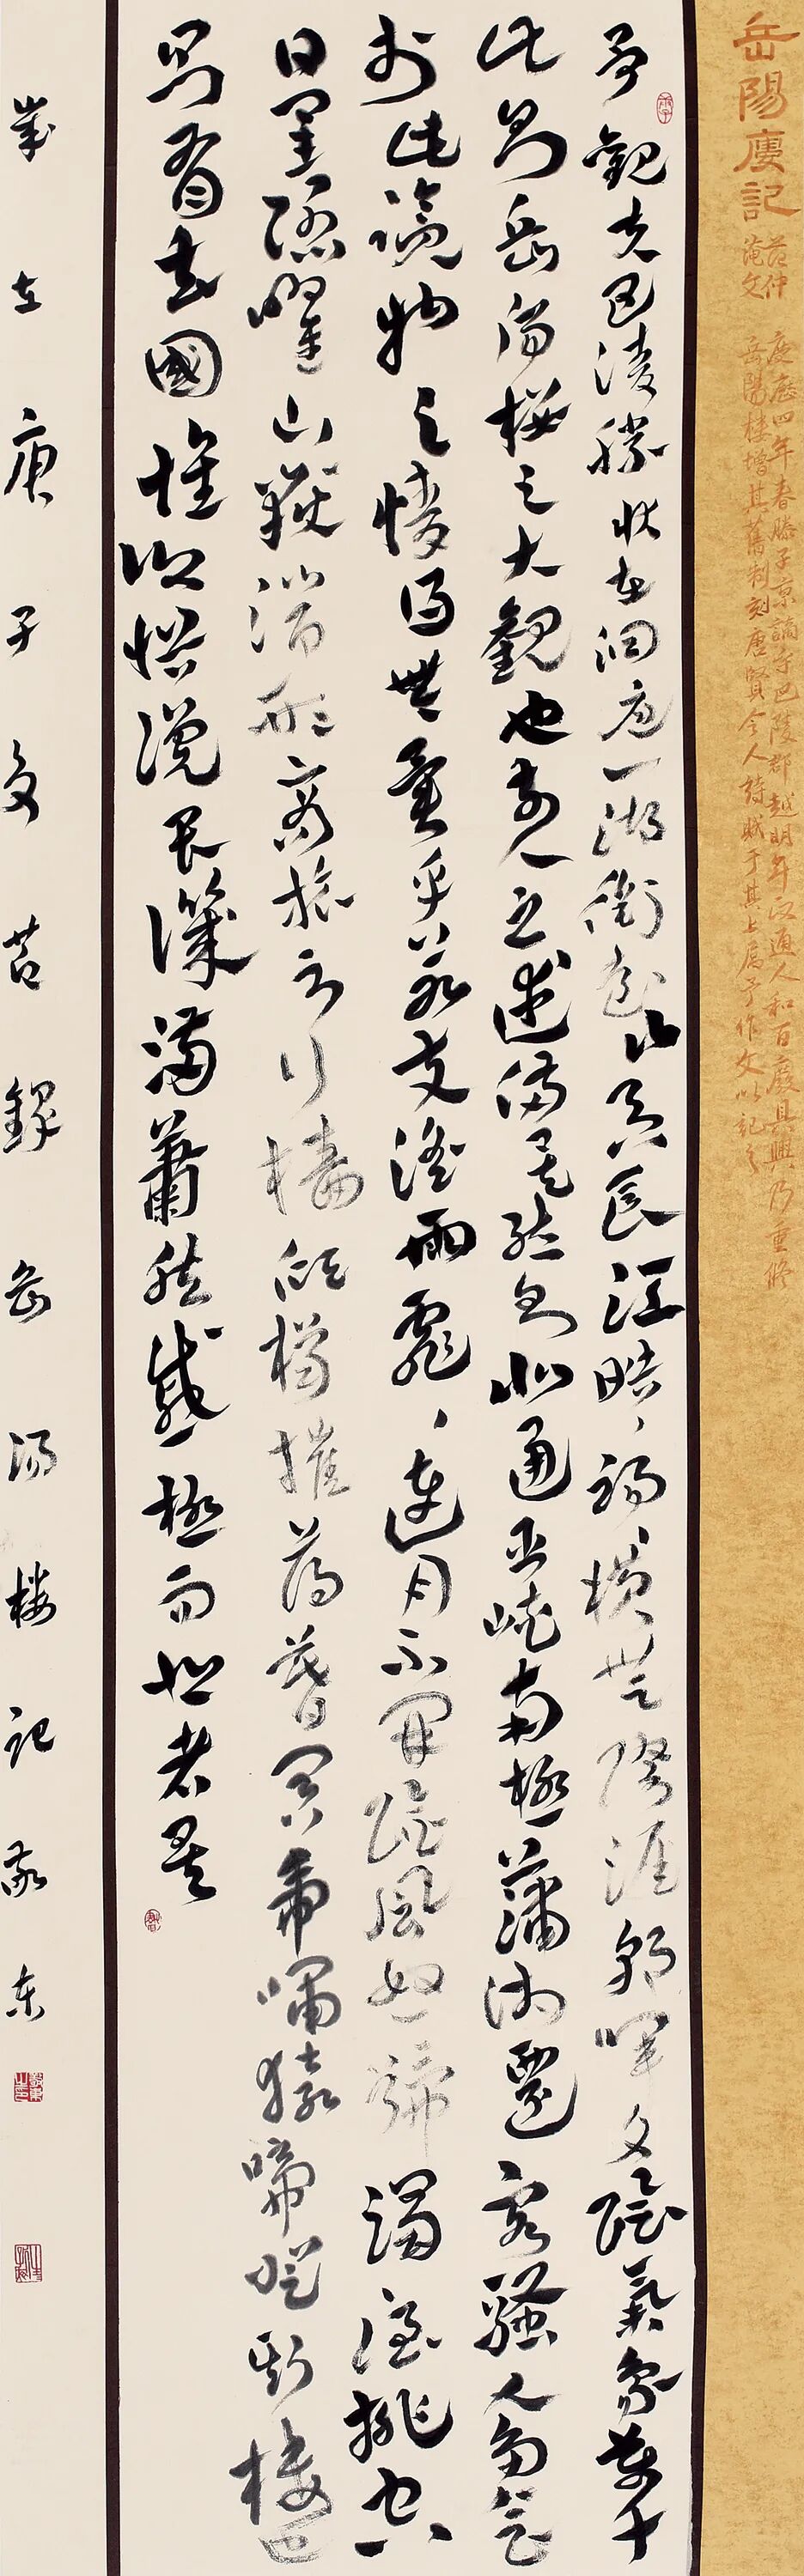 岳陽廔記
范仲
淹文
慶歷四年春滕子京謫守巴陵郡越明年政通人和百廢具興乃重修
岳陽樓增其舊制刻唐賢今人詩賦于其上屬予作文以記之
予觀夫巴陵勝狀在洞庭一湖銜遠山吞長江浩〻湯〻橫無際涯朝暉夕陰氣象萬千
此則岳陽樓之大觀也前人之述備矣然則北通巫峽南極瀟湘遷客騷人多會
於此覽物之情得無異乎若夫淫雨霏〻連月不開陰風怒號濁浪排空
日星隱曜山嶽潛形商旅不行檣傾楫摧薄暮冥虎嘯猿啼登斯樓也
則有去國懷鄉憂讒畏譏滿蕭然感極而悲者矣
歲在庚子夏節録岳陽楼記敬東